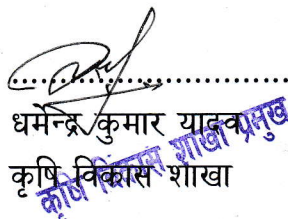 धर्मेन्द्र कुमार यादव
कृषि विकास शाखा
कृषि विकास शाखा प्रमुख